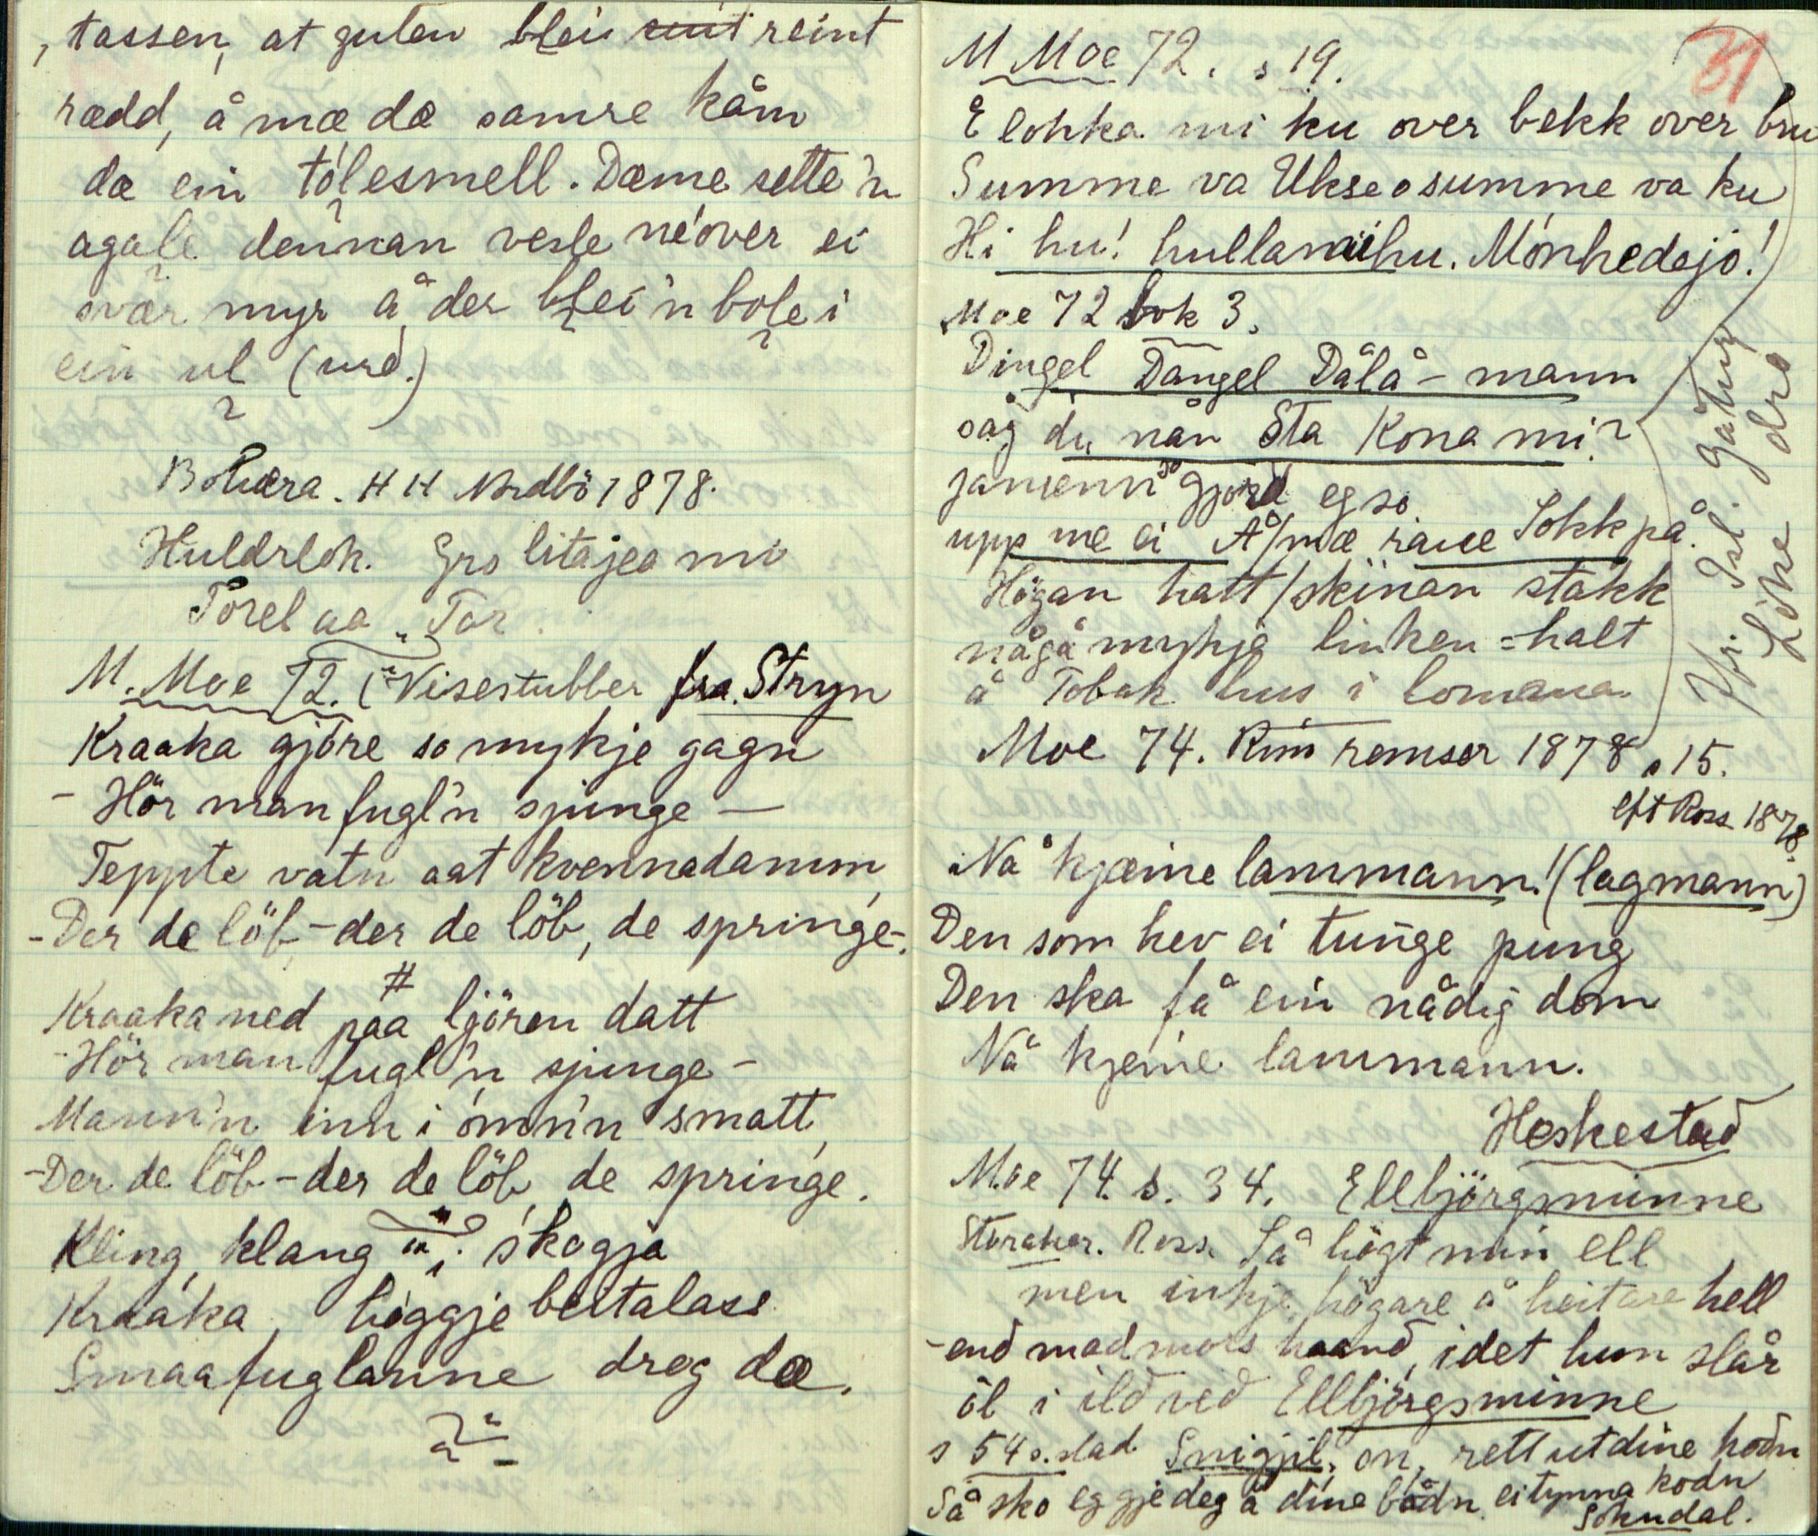 , tassen, at guten blei reint
rædd, å mæ dæ samre kåm
dæ ein tólesmell. Dæme sette'n
agale dennan vesle néover ei
svær myr å der blei'n bole i
ein ul (urd.)
Bøhæra. H H Nordbö 1878.
Huldrlok. Gro litagea mi
Torel aa Tor.
M. Moe 72. (Visestubber fra Stryn
Kraaka gjöre so mykje gagn
- Hör man fugl'n sjunge -
Teppte vatn aat kvennadamm,
- Der de löb, - der de löb, de springe -.
#
Kraaka ned paa ljören datt
- Hör man fugl'n sjunge -
Mann'n inn i ómn'n smatt,
- Der de löb - der de löb, de springe.
Kling, klang i skogja
Kraaka, höggje beitalass
Smaafuglanne drog dæ.
31
M Moe 72. s 19.
E lokka mi ku over bekk over bru
Summe va Ukse o summe va ku
Hi hu! hullamihu. Mónhedejo!
Moe 72 bok 3.
Dingel Dangel Dålå - mann
såg du nån Sta Kona mi?
jamenn so gjord eg so
upp me ei Å/mæ raue Sokk på.
Högan hatt/skinan stakk
någå mykje linken = halt
å Tobak hus i lomana.
Jfr Isl. gåtur
Like dro
Moe 74. Rim remser 1878 s 15.
eft Ross 1878.
Nå kjæine lammann! (lagmann)
Den som hev ei tunge pung
Den ska få ein nådig dom
Nå kjeine lammann.
Heskestad
Moe 74. s. 34. Ellbjörgsminne
Storaker. Ross. Så högt min ell
men inkje högare å heitare hell
- end madmors haand, idet hun slår
öl i ild ved Ellbjörgsminne
s 54 o. slad Snigjil, on, rett ut dine hodn
Så sko eg gje deg å dine bådn ei tynna kodn
Sokndal.